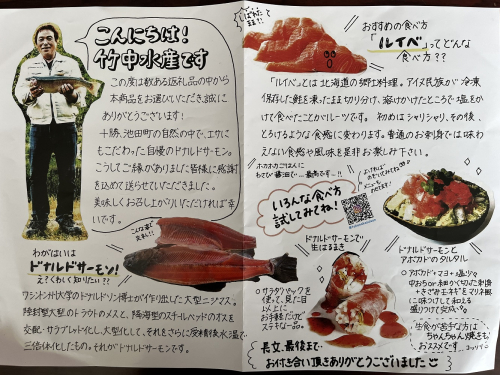 こんにちは!
竹中水産です
この度は数ある返礼品の中から
本商品をお選びいただき誠に
ありがとうございます!
十勝、池田町の自然の中で、エサにも
こだわった自慢のドナルドサーモン。
こうしてご縁がありました皆様に感謝
を込めて送らせていただきました。
美味しくお召し上がりいただければ幸
いです。
わがはいは
ドナルドサーモン!
え?くわしく知りたい??
ワシントン州大学のドナルドソン博士が作り出した大型ニジマス。
陸封型大型のトラウトのメスと、降海型のスチールヘッドのオスを
交配・サラブレッド化し、大型にして、それをさらに
三倍体化したもの。それがドナルドサーモンです。
おすすめの食べ方
「ルイベ」ってどんな
食べ方??
「ルイベ」とは北海道の郷土料理。アイヌ民族が冷凍
保存した鮭を凍ったまま切り分け、溶けかけたところで塩をかけ
て食べたことがルーツです。初めはシャリシャリ、その後、
とろけるような食感に変わります。普通のお刺身では味わ
えない食感や風味を是非お楽しみ下さい。
ホカホカごはんに
わさび醤油で…最高です~!!
いろんな食べ方
試してみてね!
ドナルドサーモンで
生はるまき
○サラダパックを
使って、見た目
以上に
お手軽だけど
ステキな一品。
ドナルドサーモンと
アボカドのタルタル
○アボカド+マヨ+塩少々
中おちor細かく切った刺身
+きざみ玉ネギをワサビ醤油
に味つけして和える
盛りつけて完成。
生食が苦手な方は
ちゃんちゃん焼きも
おススメです
長文、最後まで
お付き合い頂きありがとうございました